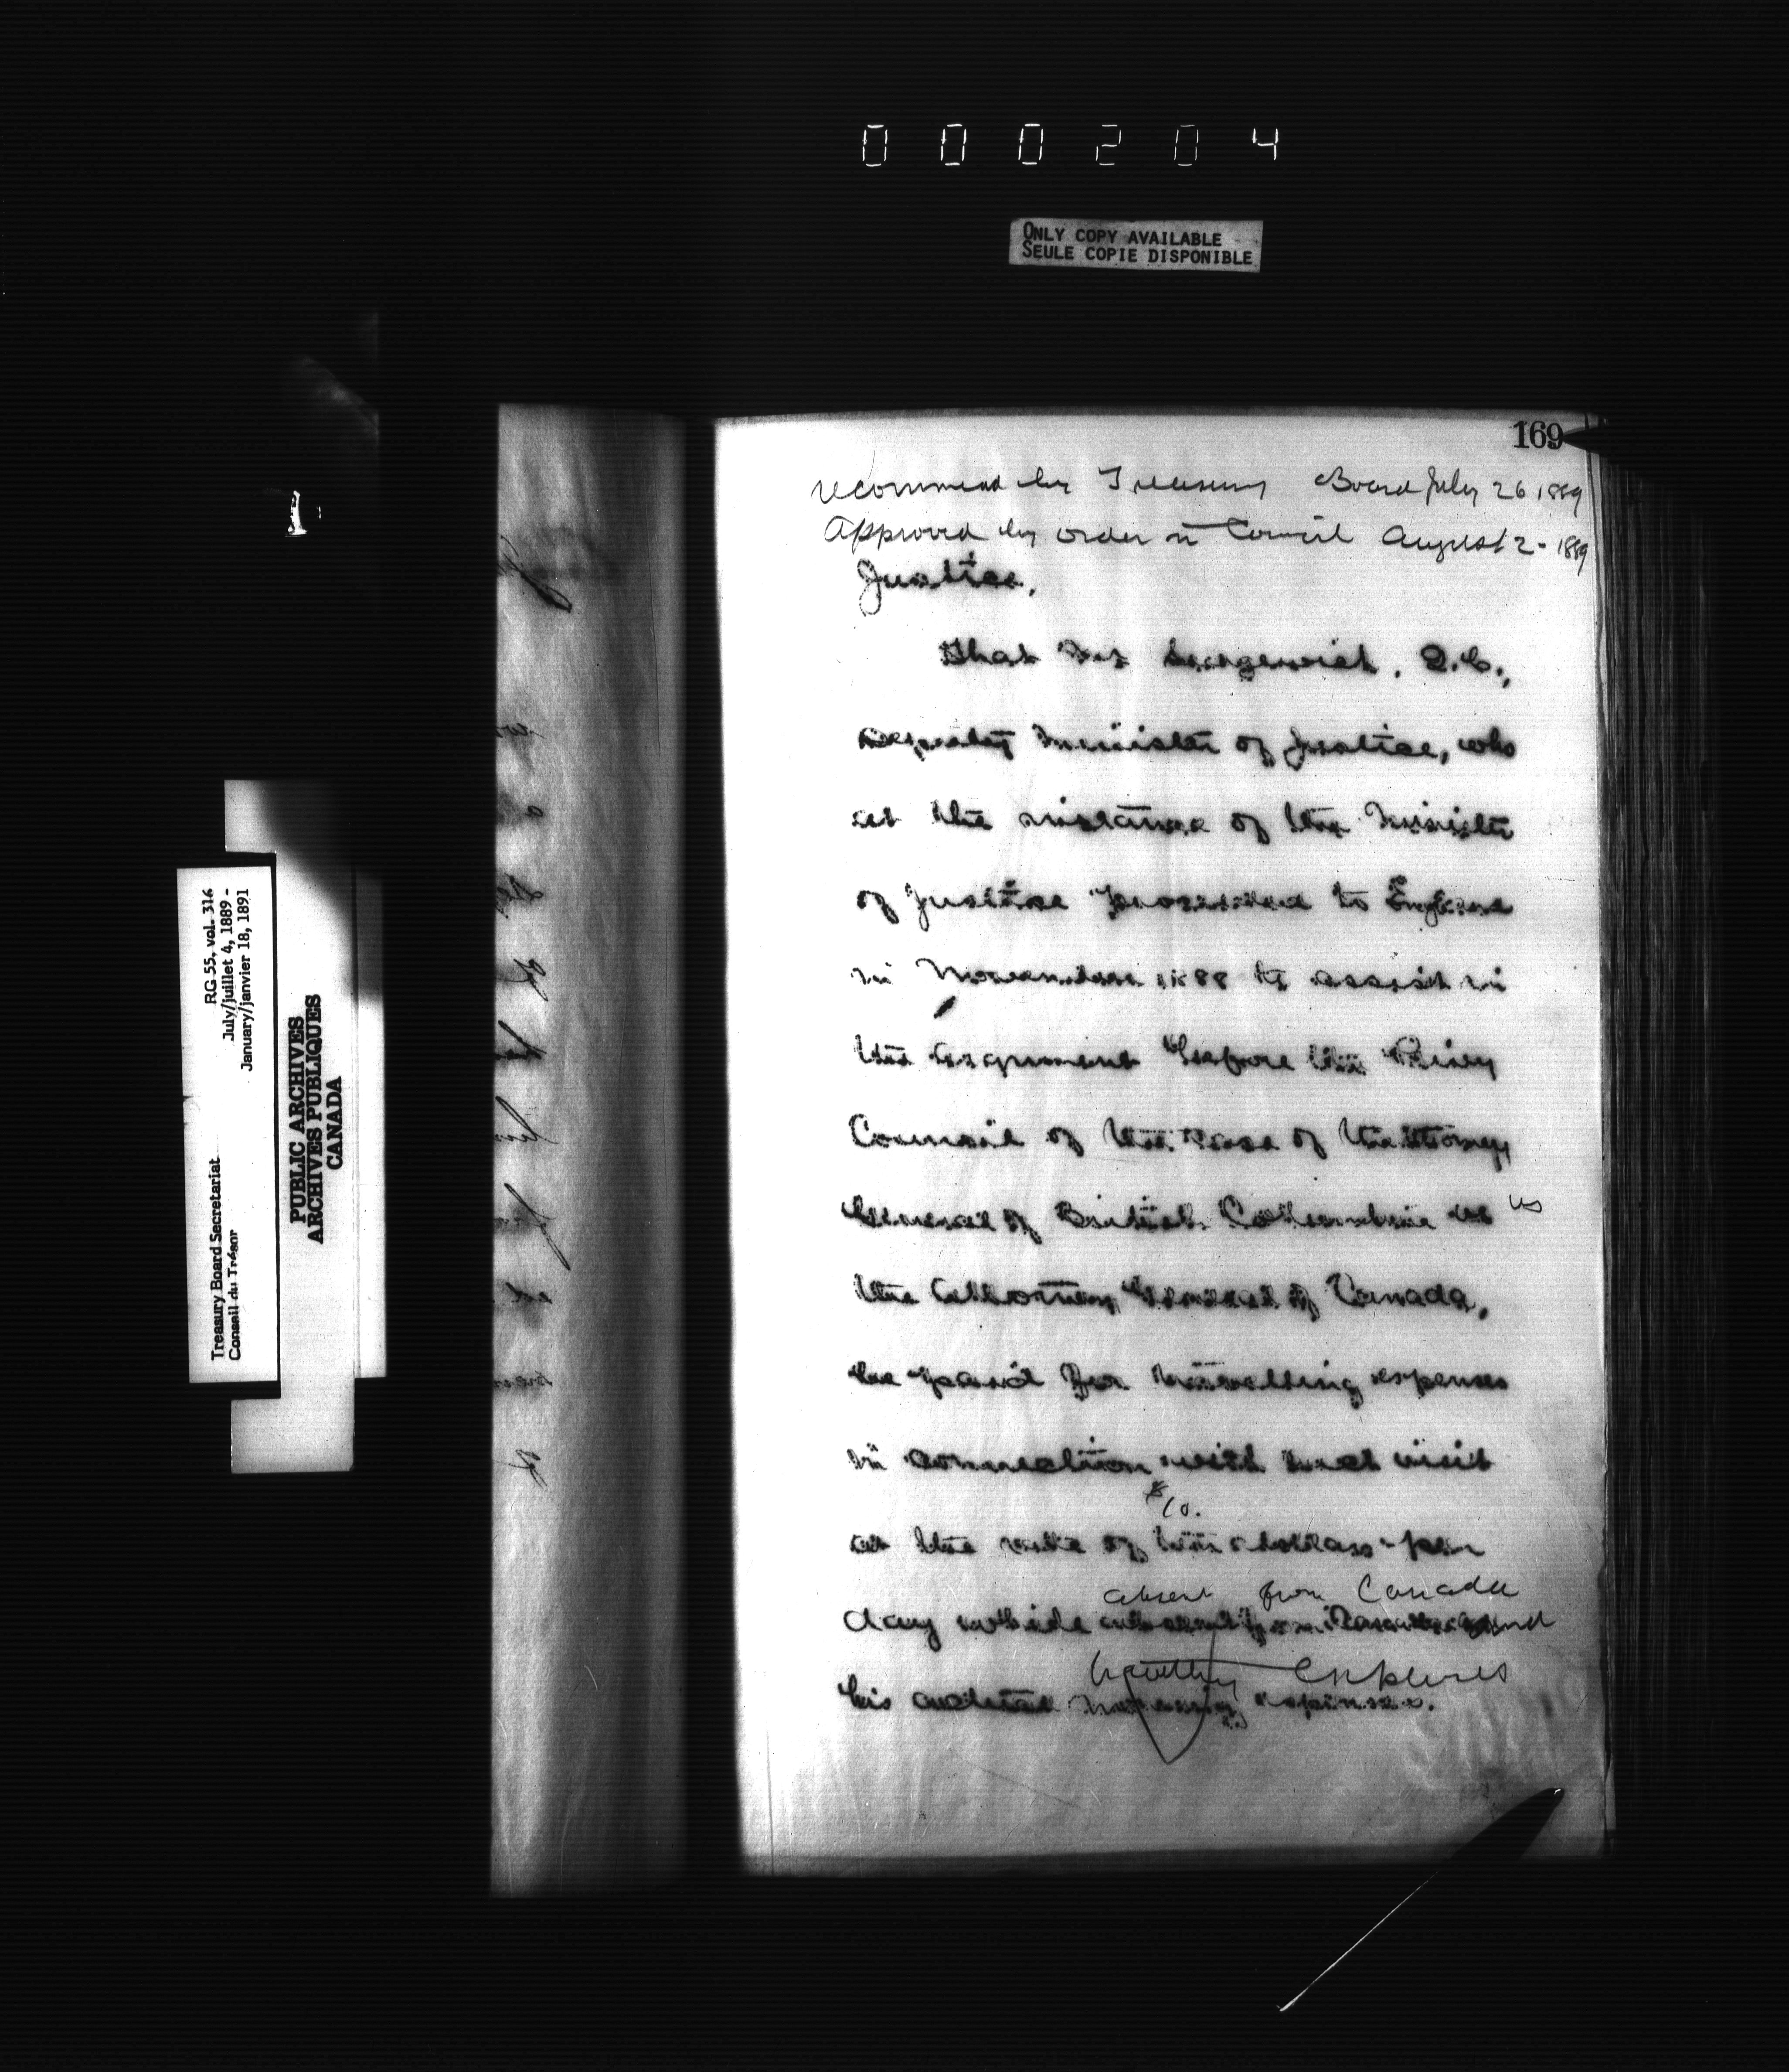 000204
ONLY COPY AVAILABLE
SEULE COPIE DISPONIBLE
169
recommend by Treasury Board July 26 1889
Approved by order in Council August 2 - 1889
Justice,
That Mr Sedgewick, Q.C.,
Deputy Minister of Justice, who
at the instance of the Minister
of Justice proceeded to England
in November 1888 to assist in
the argument before the Privy
Council of the case of the Attorney
General of British Columbia vs vs
the Attorney General of Canada,
be paid for travelling expenses
in connection with such visit
$10.
at the rate of ten dollars per
absent from Canada
day while absent from Canada and
expenses
his actual expenses.
Treasury Board Secretariat
Conseil du Trésor
RG 55, vol. 316
July/juillet 4, 1889 -
January/janvier 18, 1891
PUBLIC ARCHIVES
ARCHIVES PUBLIQUES
CANADA